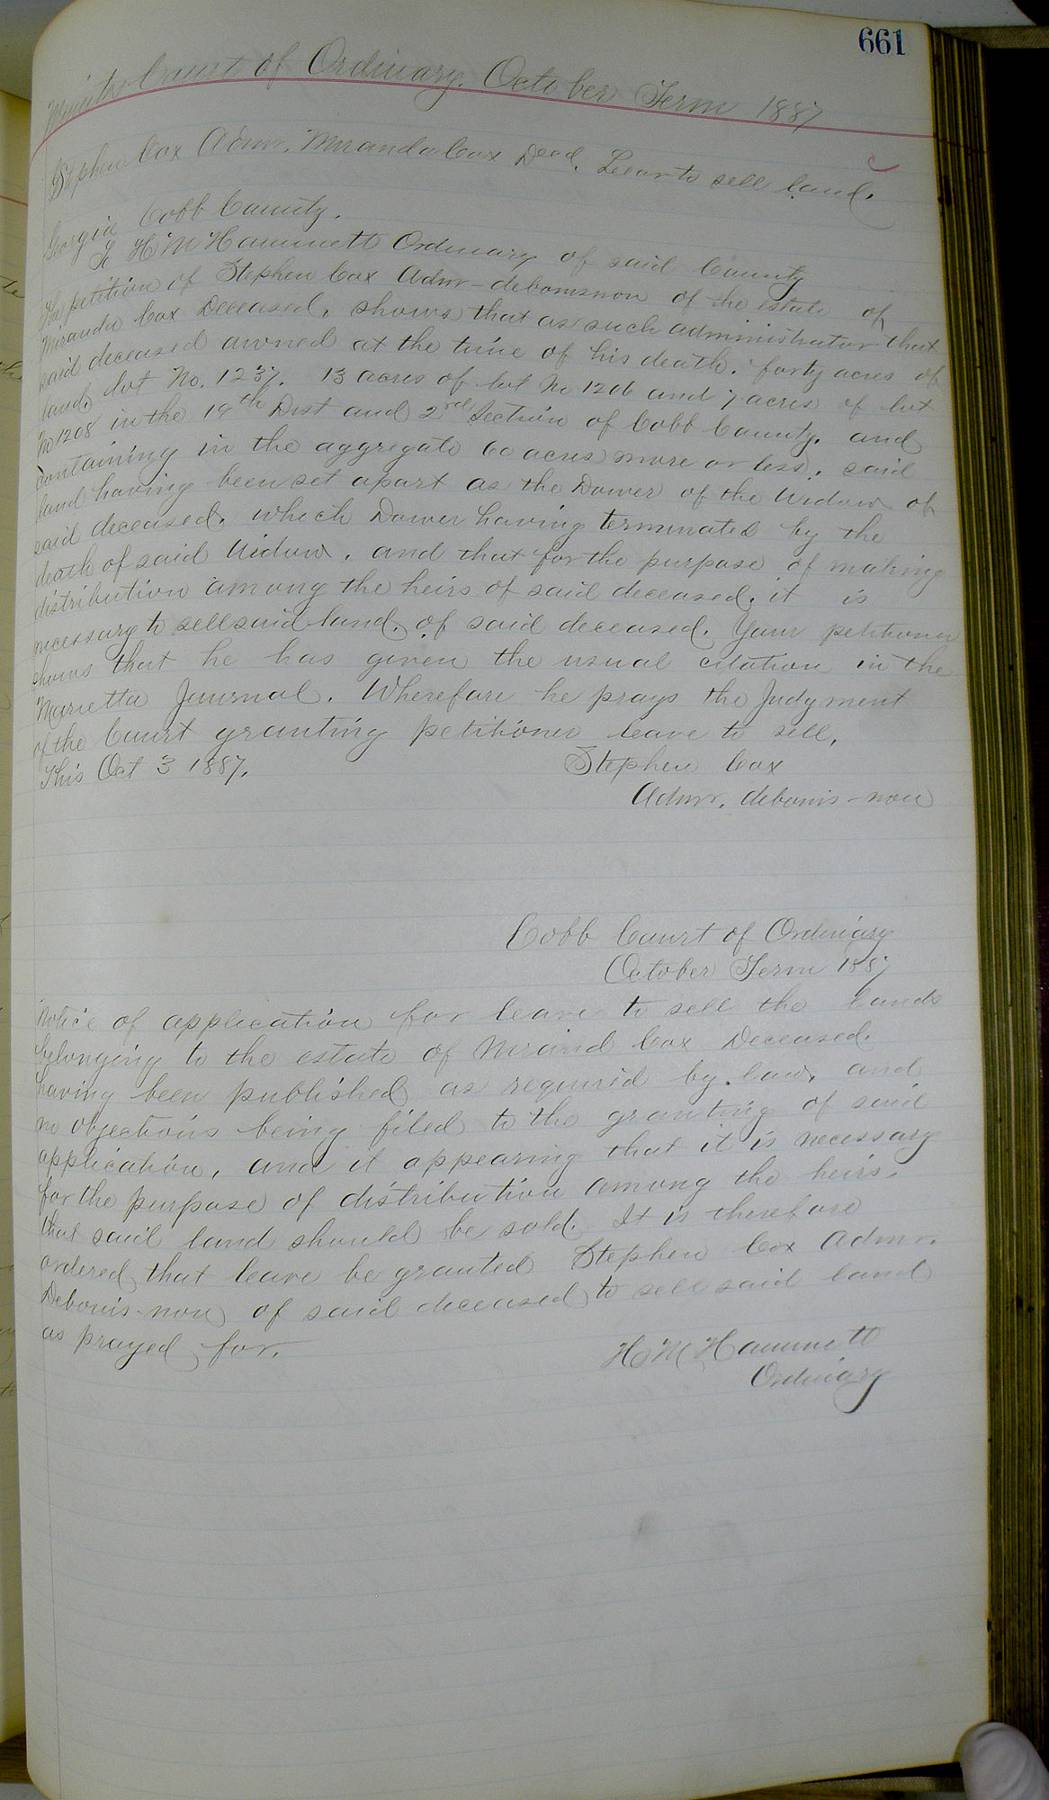 661
Minutes Court of Ordinary. October Term 1887
Stephen Cox Admr. Miranda Cox Decd. Leave to sell land.
Georgia Cobb County.
To H M Hammett Ordinary of said County
The petition of Stephen Cox Admr debonisnon of the estate of
Miranda Cox Deceased, shows that as such administrator that
said deceased owned at the time of his death. forty acres of
land, lot No. 1237. 13 acres of lot No 1206 and 7 acres of lot
No 1208 in the 19th Dist and 2nd Section of Cobb County. and
containing in the aggregate 60 acres more or less. said
land having been set apart as the Dower of the Widow of
said deceased. which Dower having terminated by the
death of said Widow. and that for the purpose of making
distribution among the heirs of said deceased. it is
necessary to sell said land. of said deceased. Your petitioner
shows that he has given the usual citation in the
Marietta Journal. Wherefore he prays the Judgment
of the Court granting petitioner leave to sell.
This Oct 3 1887. Stephen Cox
Admr. debonis-non
Cobb Court of Ordinary
October Term 1887
Notice of application for leave to sell the lands
belonging to the estate of Mirand Cox Deceased.
having been published as required by law, and
no objections being filed to the granting of said
application, and it appearing that it is necessary
for the purpose of distribution among the heirs.
that said land should be sold. It is therefore
ordered that leave be granted Stephen Cox Admr.
Debonis-non of said deceased to sell said land
as prayed for.
H M Hammett
Ordinary